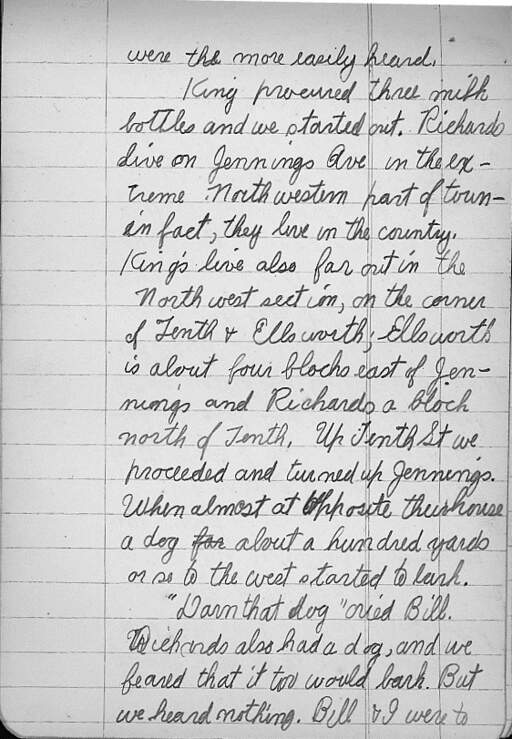 were the more easily heard.
King procured three milk
bottles and we started out. Richards
live on Jennings Ave in the ex-
treme Northwestern part of town-
in fact, they live in the country.
King's live also far out in the
Northwest section, on the corner
of Tenth & Ellsworth; Ellsworth
is about four blocks east of Jen-
nings and Richards a block
north of Tenth. Up Tenth St we
proceeded and turned up Jennings.
When almost at opposite their house
a dog far about a hundred yards
or so to the west started to bark.
"Darn that dog" cried Bill.
Richards also had a dog, and we
feared that it too would bark. But
we heard nothing. Bill & I were to